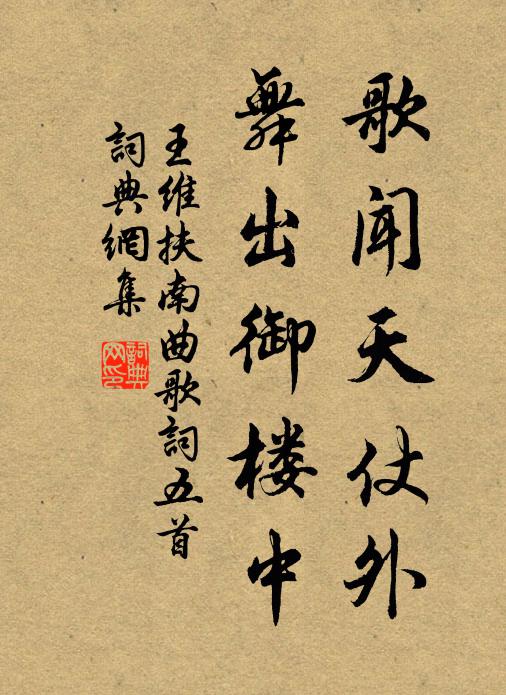 歌闻天仗外
舞出御楼中
王维扶南曲歌詞五首
詞典網集
詞典
网印